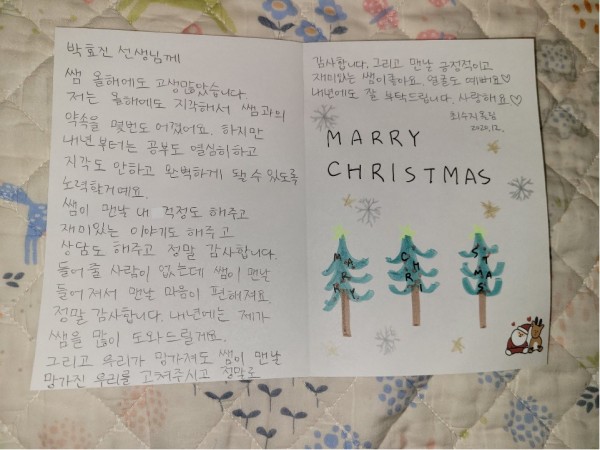 박효진 선생님께
쌤 올해에도 고생많았습니다.
저는 올해에도 지각해서 쌤과의
약속을 몇번도 어겼어요. 하지만
내년부터는 공부도 열심히하고
지각도 안하고 완벽하게 될 수 있도록
노력할거예요.
쌤이 맨날 내 걱정도 해주고
재미있는 이야기도 해주고
상담도 해주고 정말 감사합니다.
들어 줄 사람이 없는데 쌤이 맨날
들어줘서 맨날 마음이 편해져요.
정말 감사합니다. 내년에는 제가
쌤을 많이 도와드릴게요.
그리고 우리가 망가져도 쌤이 맨날
망가진 우리를 고쳐주시고 정말로
감사합니다. 그리고 맨날 긍정적이고
재미있는 쌤이좋아요. 얼굴도 예뻐요♡
내년에도 잘 부탁드립니다. 사랑해요♡
최수지
2020.12.
MARRY
CHRISTMAS
MARRY
CHRI
STMAS